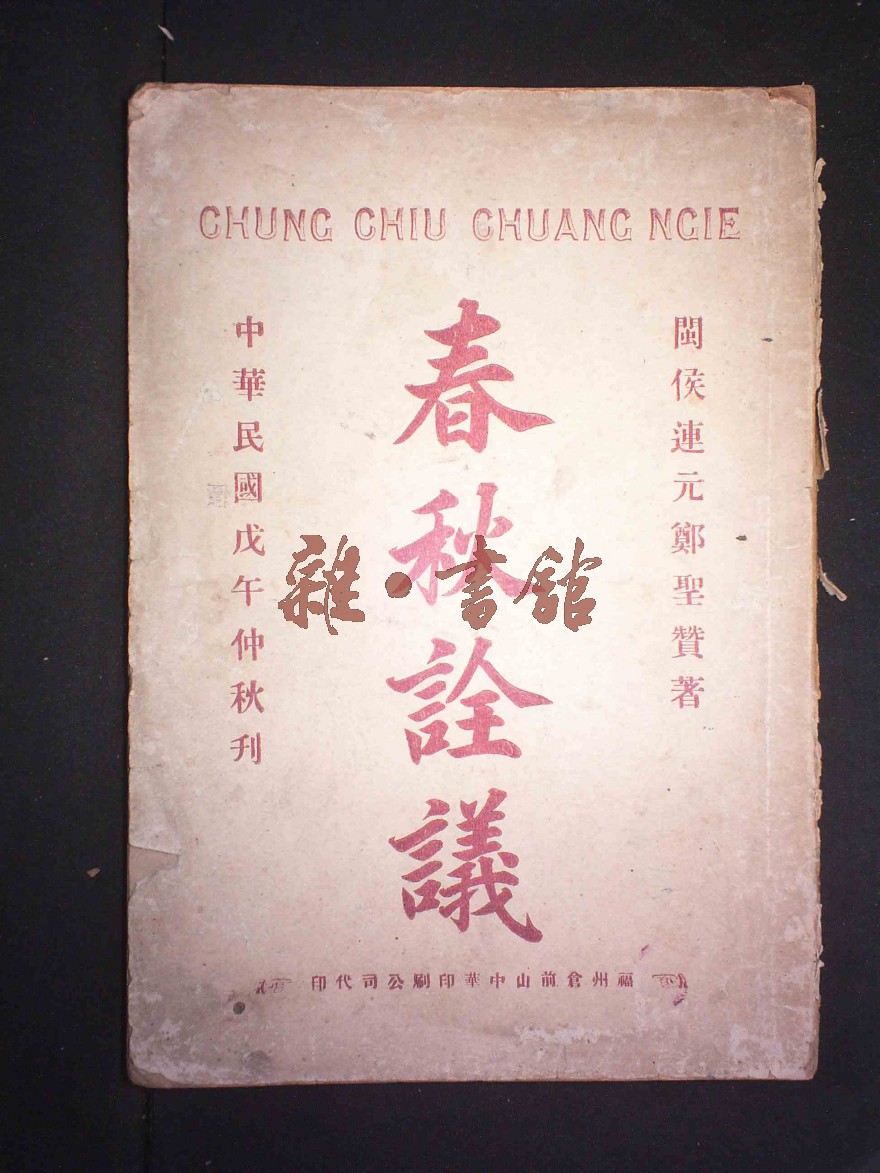 CHUNG CHIU CHUANG NGIE
閩侯連元鄭聖贊著
春秋詮議
中華民國戊午仲秋刊
福州倉前山中華印刷公司代印
雜·書館